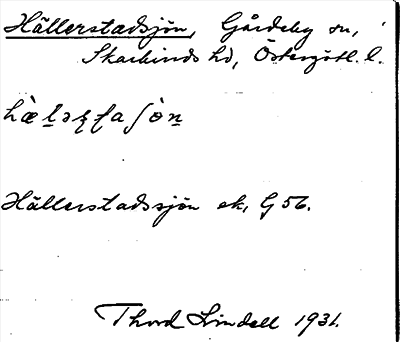 Hällerstadsjön, Gårdeby sn,
Skärkinds hd, Östergötl. l.
Hällerstadssjön ek, G 56.
Thord Lindell 1931.